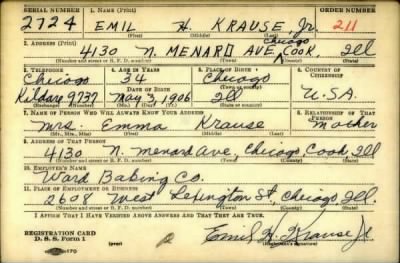 SERIAL NUMBER 1. NAME (Print) ORDER NUMBER
2724 EMIL H. KRAUSE Jr. 211
(First) (Middle) (Last)
2. ADDRESS (Print)
Chicago
4130 N. MENARD AVE. COOK, Ill
(Number and street or R. F. D. number) (Town) (County) (State)
3. TELEPHONE 4. AGE IN YEARS 5. PLACE OF BIRTH 6. COUNTRY OF CITIZENSHIP
Chicago 34 Chicago
DATE OF BIRTH (Town or county)
Kildare 9737 May 2, 1906 Ill U.S.A.
(Exchange) (Number) (Mo.) (Day) (Yr.) (State or country)
7. NAME OF PERSON WHO WILL ALWAYS KNOW YOUR ADDRESS 8. RELATIONSHIP OF THAT PERSON
Mrs. Emma Krause Mother
(Mr., Mrs., Miss) (First) (Middle) (Last)
9. ADDRESS OF THAT PERSON
4130 N. Menard Ave, Chicago Cook Ill
(Number and street or R. F. D. number) (Town) (County) (State)
10. EMPLOYER'S NAME
Ward Baking Co.
11. PLACE OF EMPLOYMENT OR BUSINESS
2608 West Lexington St, Chicago Ill.
(Number and street or R. F. D. number) (Town) (County) (State)
I AFFIRM THAT I HAVE VERIFIED ABOVE ANSWERS AND THAT THEY ARE TRUE.
REGISTRATION CARD
D. S. S. Form 1 (over) Emil H. Krause Jr